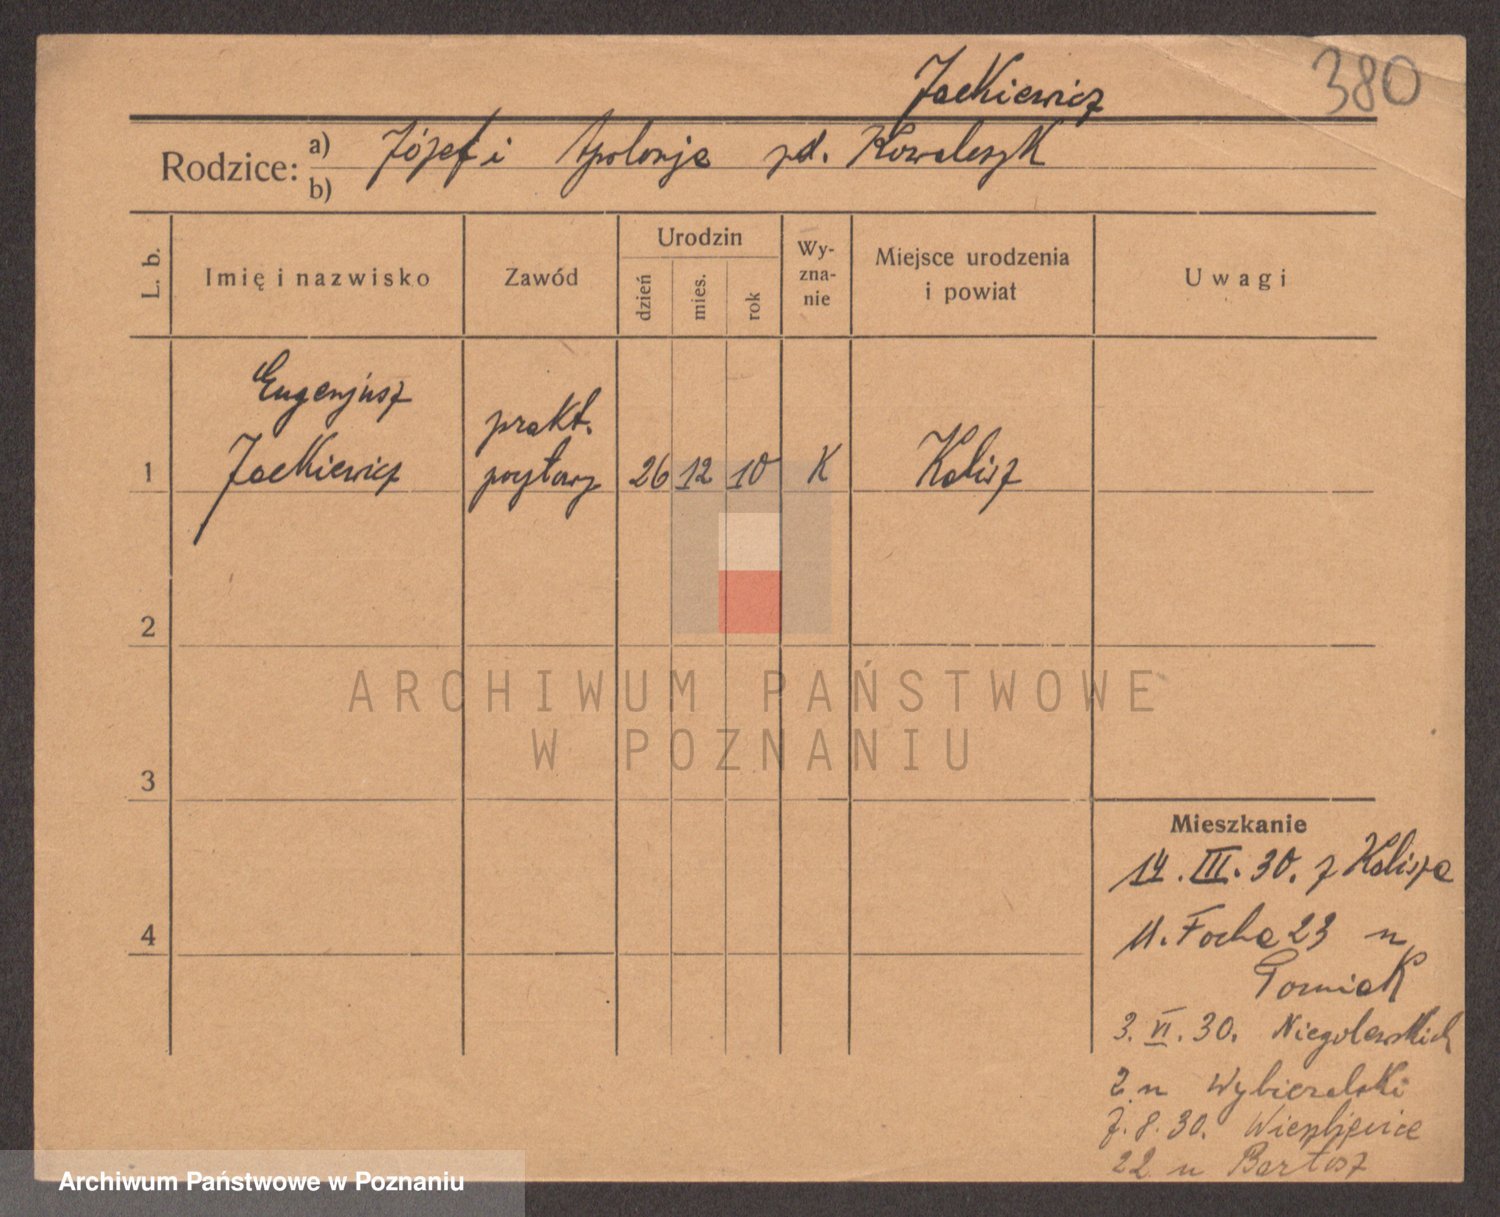 Jackiewicz
380
Rodzice: a) Józef i Apolonja zd. Kowalczyk
b)
L. b.
Imię i nazwisko
Zawód
Urodzin
dzień
mies.
rok
Wy-
zna-
nie
Miejsce urodzenia
i powiat
Uwagi
Eugenjusz
prakt.
1 Jackiewicz pocztowy 26 12 10 K Kalisz
2
ARCHIWUM PAŃSTWOWE
W POZNANIU
3
Mieszkanie
14. III. 30. z Kalisza
4
M. Focha 23 u
Gorniak
3. VI. 30. Niegolewskich
2 u Wybieralski
7. 8. 30. Wierzbięcice
22 u Bartosz
Archiwum Państwowe w Poznaniu